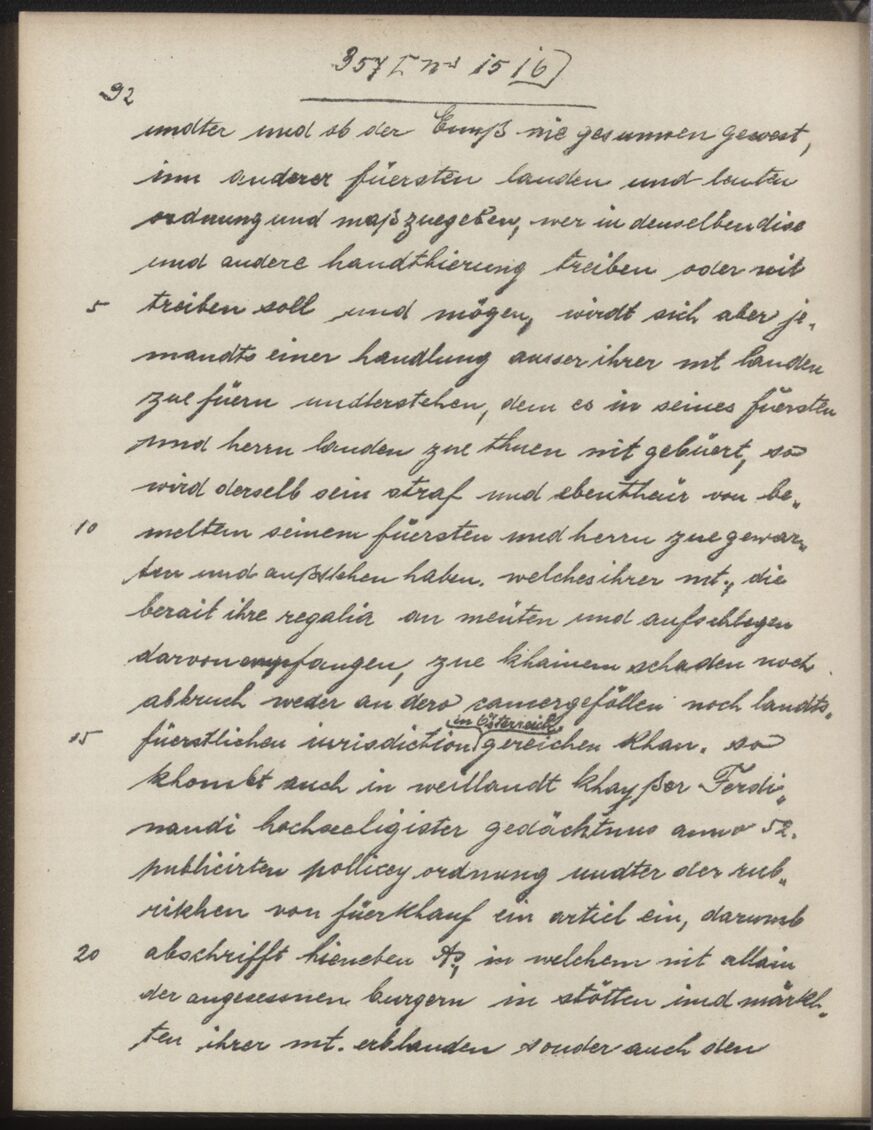 357 I n⁰ 15 16
92
undter und ob der Ennß nie gesunnen gewest,
inn anderer füersten landen und leuten
ordnung und maß zuegeben, wer in denselben dise
und andere handthierung treiben oder nit
5 treiben soll und mögen, wirdt sich aber je„
mandts einer handlung ausser ihrer mt landen
zue füern understehen, dem es in seines füersten
und herrn landen zue thuen nit gebüert, so
wird derselb sein straf und ebentheür von be„
10 melten seinem füersten und herrn zue gewar„
ten und außstehen haben. welches ihrer mt., die
berait ihre regalia an meüten und aufschlegen
darvon empfangen, zue khainem schaden noch
abbruch weder an dero camergeföllen noch landts„
in Österreich
15 füerstlichen iurisdiction gereichen khan. so
khombt auch in weillandt khayßer Ferdi„
nandi hochseeligister gedächtnus anno 52.
publicirten pollicey ordnung undter der rub„
rikhen von füerkhauf ein articl ein, darumb
20 abschrifft hieneben A, in welchem nit allain
der angesessnen burgern in stötten und märkh„
ten ihrer mt. erblanden sonder auch den